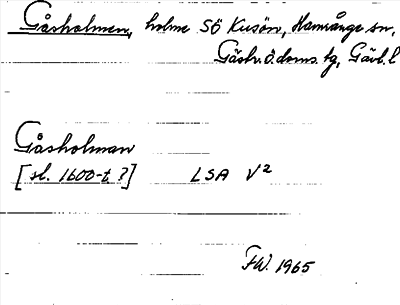 Gåsholmen, holme SÖ Kusön, Hamrånge sn,
Gästr. ö. doms. tg, Gävl. l
Gåsholman
[sl. 1600-t ?] LSA V²
FW. 1965